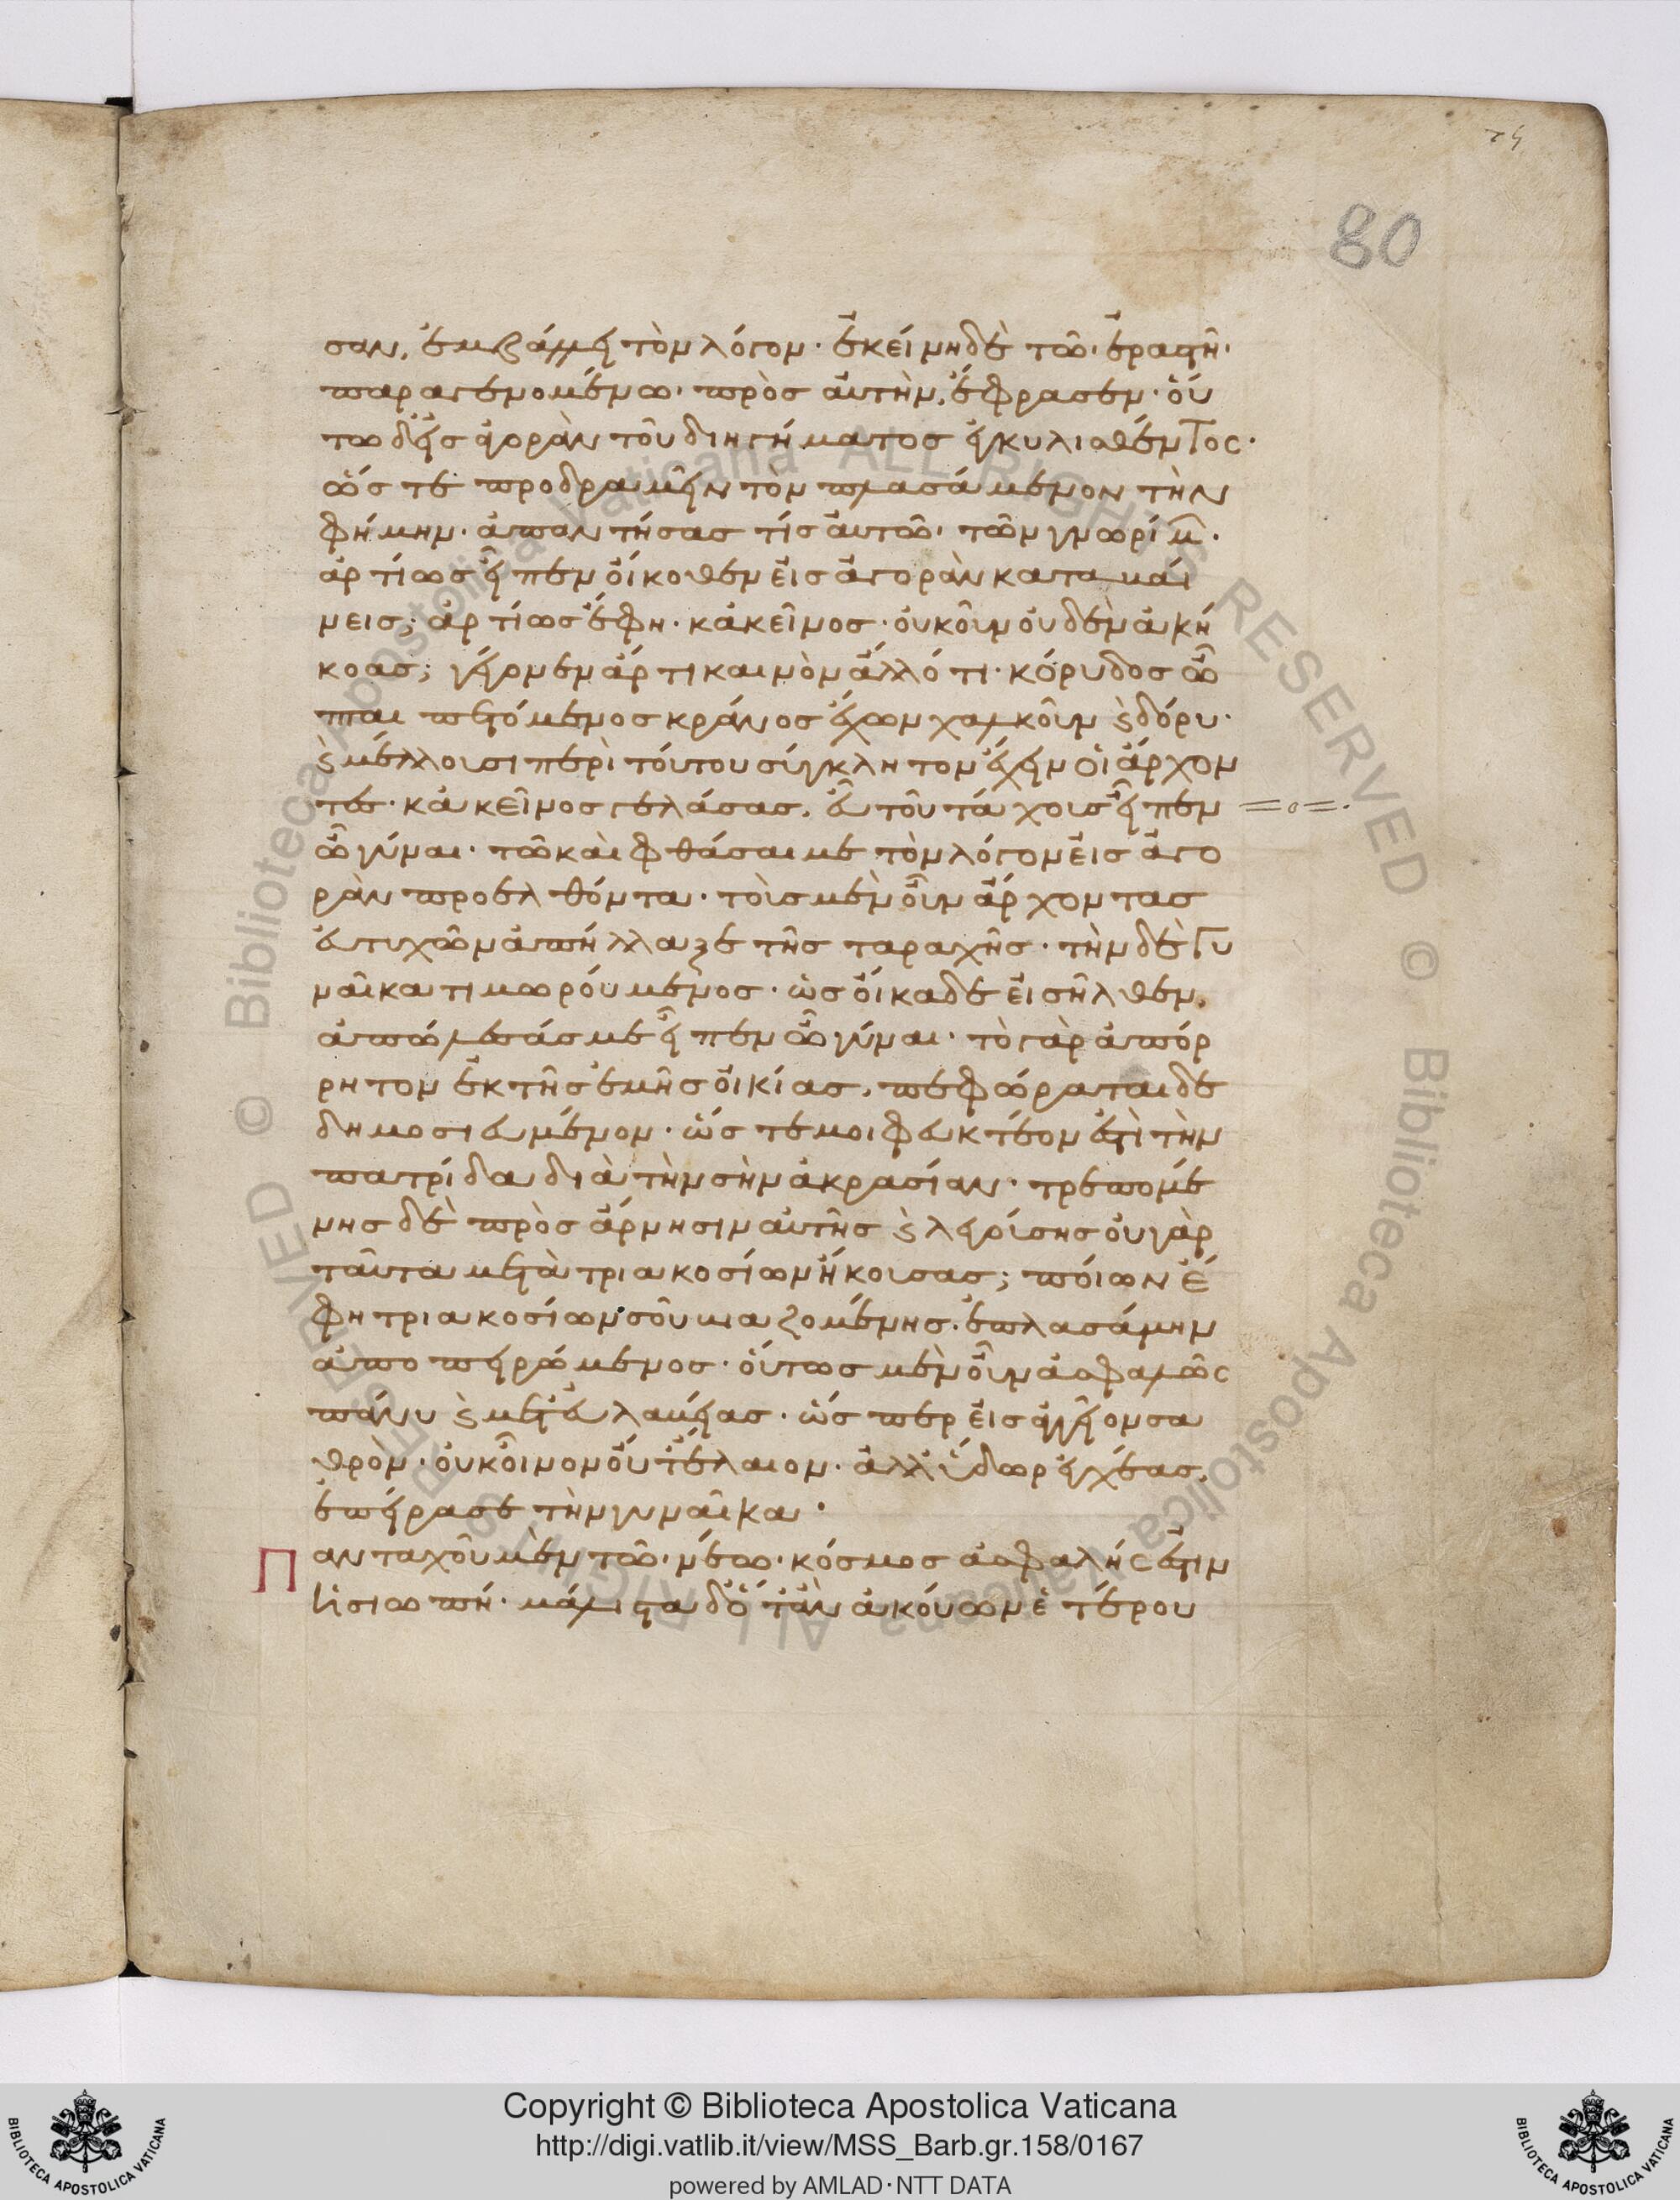 74
80
σαν, ἐμβάλλει τὸν λόγον· ἐκείνη δὲ τῶ ἐραστῆ
παραγενομένω πρὸς αὐτὴν, ἔφρασεν· οὕ
τω δ' εἰς ἀγορὰν τοῦ διηγήματος ἐγκυλισθέντος·
ὥς τε προδραμεῖν τὸν πλασάμενον τὴν
φήμην· ἀπαντήσας τίς αὐτῶ τῶν γνωρίμ·
ἀρτίως εἶπεν οἴκοθεν εἰς ἀγορὰν καταβαί
νεις; ἀρτίως ἔφη· κἀκεῖνος· οὐκοῦν οὐδὲν ἀκή
κοας; γέγονεν ἄρτι καινὸν ἄλλό τι· κόρυδος ὦ
πται πετόμενος κράνος ἔχων χαλκοῦν ϗ δόρυ·
ϗ μέλλουσι περὶ τούτου σύγκλητον ἔχειν οἱ ἄρχον
τες· κἀκεῖνος γελάσας, εὖ τοῦ τάχους εἶπεν
ὦ γύναι· τῶ καὶ φθάσαι με τὸν λόγον εἰς ἀγο
ρὰν προελθόντα· τοὺς μὲν οὖν ἄρχοντας
ἐντυχὼν ἀπήλλαξε τῆς ταραχῆς· τὴν δὲ γυ
ναῖκα τιμωρούμενος· ὡς οἴκαδε εἰσῆλθεν,
ἀπώλεσάς με εἶπεν ὦ γύναι· τὸ γὰρ ἀπόρ
ρητον ἐκ τῆς ἐμῆς οἰκίας, πεφώραται δε
δημοσιευμένον· ὥς τε μοι φευκτέον ἐστὶ τὴν
πατρίδα διὰ τὴν σὴν ἀκρασίαν· τρεπομέ
νης δὲ πρὸς ἄρνησιν αὐτῆς ϗ λεγούσης οὐ γὰρ
ταῦτα μετὰ τριακοσίων ἤκουσας; ποίων ἔ
φη τριακοσίων· σοῦ βιαζομένης, ἐπλασάμην
ἀποπειρώμενος· οὕτως μὲν οὖν ἀσφαλῶς
πάνυ ϗ μετ' εὐλαβείας· ὥς περ εἰς ἀγγεῖον σα
θρὸν· οὐκ οἶνον οὔτ' ἔλαιον· ἀλλ' ὕδωρ ἐγχέας,
ἐπείρασε τὴν γυναῖκα·
Πανταχοῦ μὲν τῶ νέω κόσμος ἀσφαλής ἐστιν
ἡ σιωπή· μάλιστα δ' ὅταν ἀκούων ἑτέρου
Copyright © Biblioteca Apostolica Vaticana
http://digi.vatlib.it/view/MSS_Barb.gr.158/0167
powered by AMLAD·NTT DATA